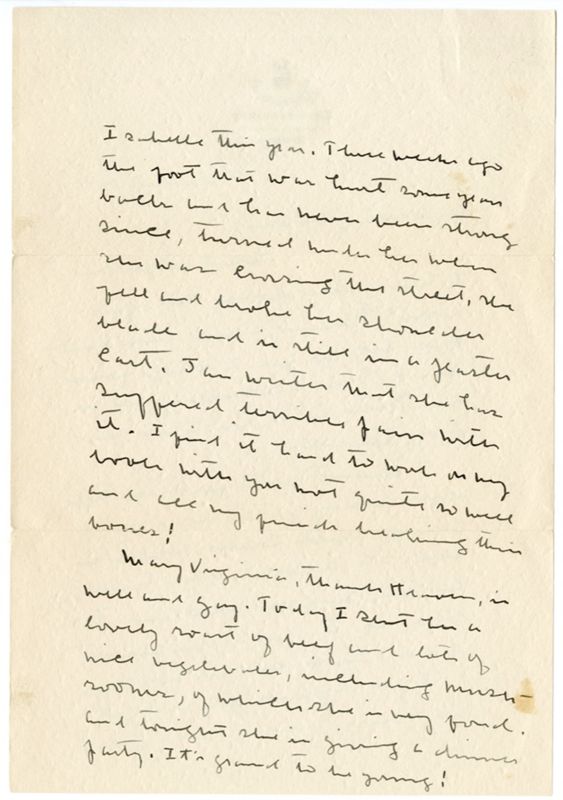 Isabelle this year. Three weeks ago
the foot that was hurt some years
back and has never been strong
since, turned under her when
she was crossing the street, she
fell and broke her shoulder
blade and is still in a plaster
cast. Jan writes that she has
suffered terrible pain with
it. I find it hard to work on my
book with you not quite so well
and all my friends breaking their
bones!
Mary Virginia, thank Heaven, is
well and gay. Today I sent her a
lovely roast of beef and lots of
nice vegetables, including mush-
rooms, of which she is very fond.
and tonight she is giving a dinner
party. It's grand to be young!